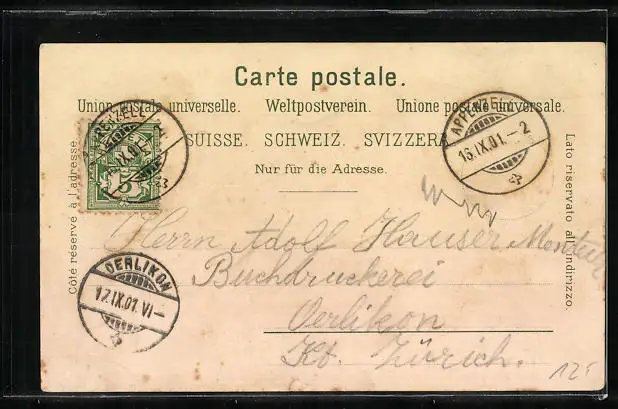 Carte postale.
Union postale universelle. Weltpostverein. Unione postale universale.
SUISSE. SCHWEIZ. SVIZZERA
Nur für die Adresse.
Côté réservé à l'adresse.
Lato riservato all'indirizzo.
APPENZELL
16.IX.01.–2
5
OERLIKON
17.IX.01.VI–
Herrn Adolf Hauser Monteur
Buchdruckerei
Oerlikon
Kt. Zürich.
125